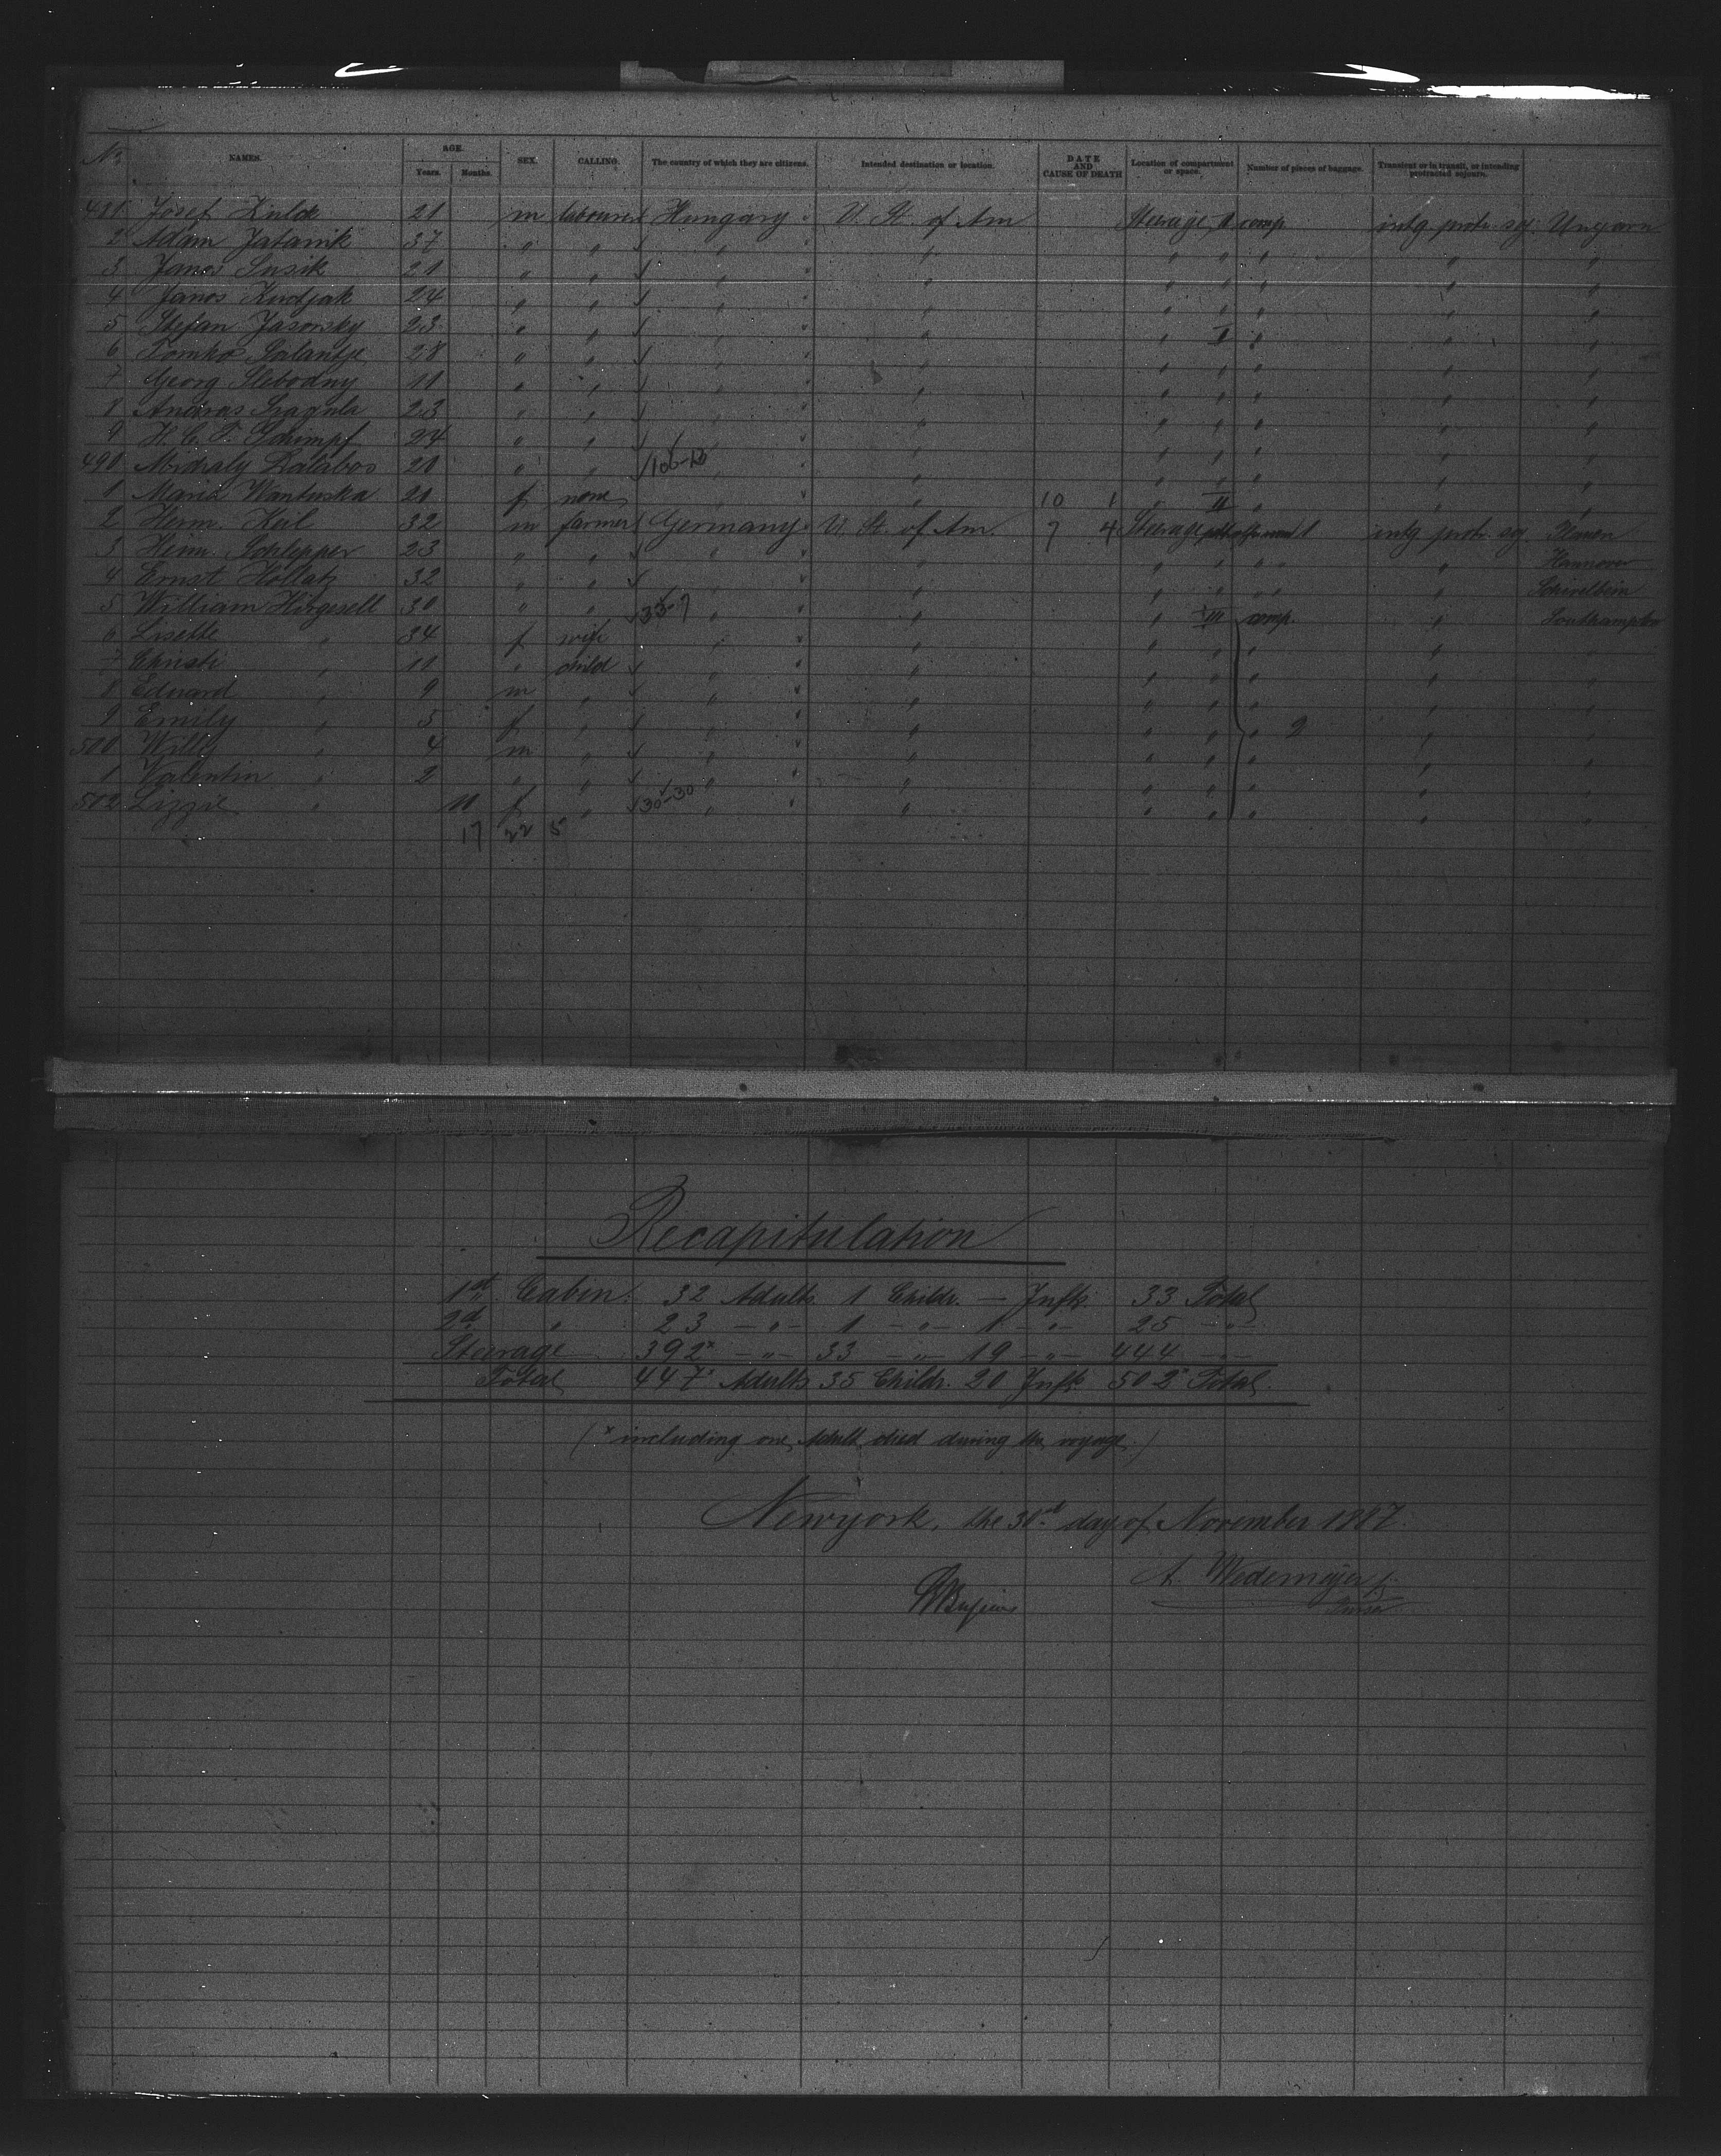 No. NAMES. AGE. Years. Months. SEX. CALLING. The country of which they are citizens. Intended destination or location. DATE AND CAUSE OF DEATH Location of compartment or space. Number of pieces of baggage. Transient or in transit, or intending protracted sojourn.
481 Josef 21 m labourer Hungary " U. St. of Am Steerage II comp intg protr. sg Ungarn
2 Adam 37 " " " " " " " " " "
3 Janos Susik 21 " " " " " " " " " "
4 Janos Kudjak 24 " " " " " " " " " "
5 Stefan Jasorsky 23 " " " " " " I " " "
6 Tomko Galantje 28 " " " " " " " " " "
7 Georg Slebodny 11 " " " " " " " " " "
8 Andras 23 " " " " " " " " " "
9 H. C. F. Schimpf 24 " " " " " " " " " "
490 20 " " " " " " " " " "
1 Maria Wantuska 20 f none " " " 10 1 " II " " "
2 Herm. Keil 32 m farmer Germany " U. St. of Am. 7 4 Steerage 1 intg protr. sg
3 Heinr. Schlepper 23 " " " " " " " " " " Hannover
4 Ernst Hollatz 32 " " " " " " " " " " Schivelbein
5 William Hirgesell 30 " " 33-7 " " " III comp. " Southampton
6 Lisette " 34 f wife " " " " " " " "
7 Christi " 11 " child " " " " " " " "
8 Eduard " 9 m " " " " " " " " "
9 Emily " 5 f " " " " " " " 2 " "
500 Willy " 4 m " " " " " " " " "
1 Valentin " 2 " " " " " " " " " "
502 Lizzie " 11 f " 30-30 " " " " " " " "
17 22 5
Recapitulation
1st Cabin. 32 Adults 1 Childr. — Infts. 33 Total
2d " 23 —"— 1 —"— 1 —"— 25 —"—
Steerage 392* —"— 33 —"— 19 —"— 444 —"—
Total 447* Adults 35 Childr. 20 Infts 502* Total.
(* including one Adult died during the voyage.)
Newyork, the 30th day of November 1887.
A. Wedemeyer